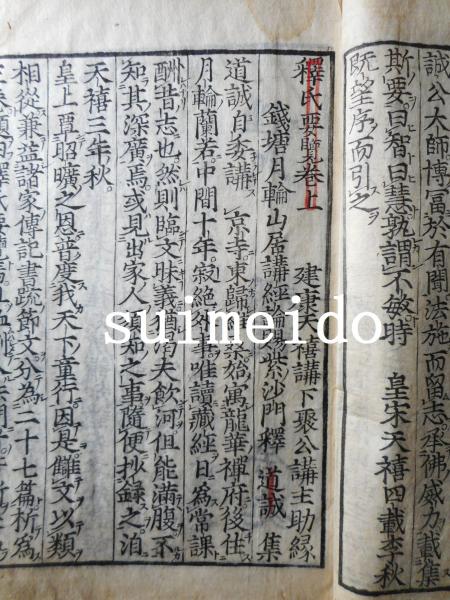 誠公大師博冨於有聞法施而留志承佛威力載集
斯要曰智曰慧孰謂不敏時　皇宋天禧四載李秋
既望序而引之
釋氏要覧巻上　建康天禧講下聚公講主助縁
錢塘月輪山居講經論紫沙門釋　道誠　集
道誠自委講京寺東歸維桑始寓龍華禪府後住
月輪蘭若中間十年寂絶外事唯讀藏經日為常課
酬昔志也然則臨文昧義猶渇夫飲河但能滿腹不
知其深廣焉或見出家人須知之事隨便抄録之洎
天禧三年秋
皇上覃昭曠之恩普度我天下童行因是讎文以類
相從兼益諸家傳記書疏節文分為二十七篇析為
suimeido